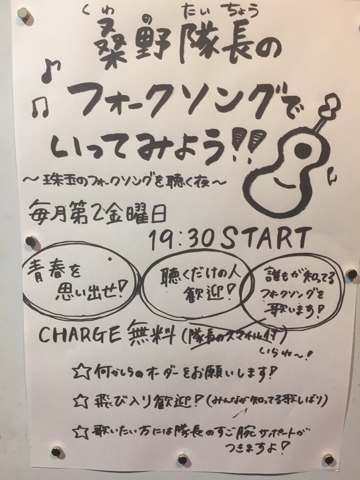 くわ の たい ちょう
桑野隊長の
フォークソングで
いってみよう!!
～珠玉のフォークソングを聴く夜～
毎月第2金曜日
19:30 START
青春を
思い出せ!
聴くだけの人
歓迎!
誰もが知ってる
フォークソングを
歌います!
CHARGE 無料(隊長のスマイル付)
いらね〜!
☆何かしらのオーダーをお願いします!
☆飛び入り歓迎!(みんなが知ってる歌しばり)
☆歌いたい方には隊長のすご腕サポートが
つきますよ!